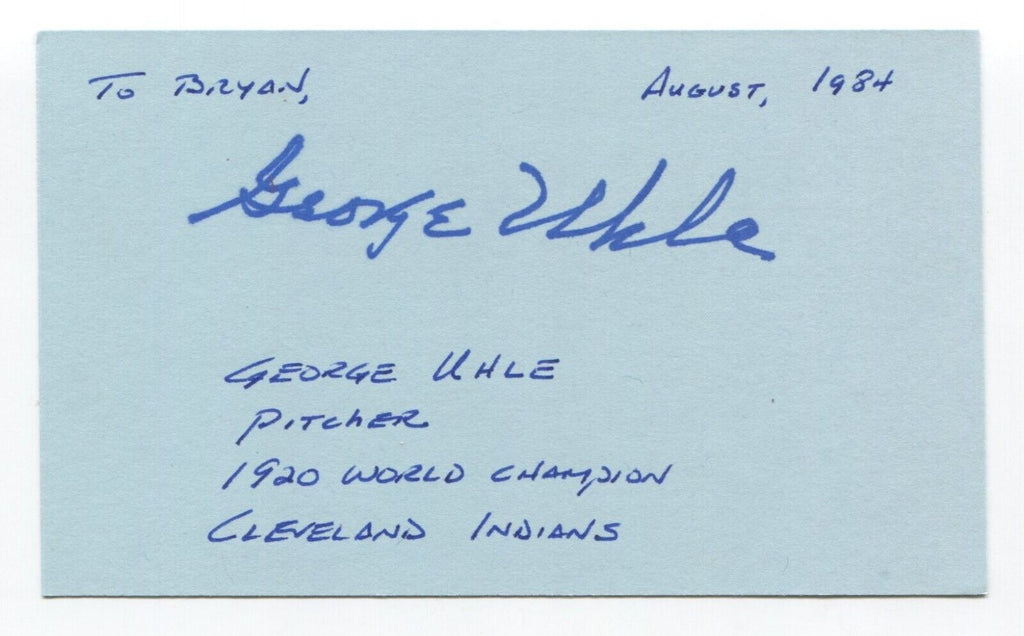 To Bryan, August, 1984
George Uhle
George Uhle
Pitcher
1920 World Champion
Cleveland Indians